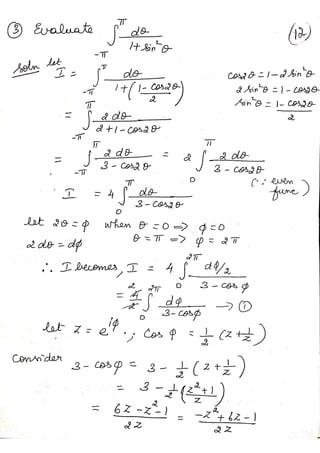 ③ Evaluate ∫_{-π}^{π} dθ / (1+sin²θ) (12)
Soln let
I = ∫_{-π}^{π} dθ / (1+((1-cos2θ)/2)) cos2θ = 1-2sin²θ
2sin²θ = 1-cos2θ
sin²θ = (1-cos2θ)/2
= ∫_{-π}^{π} 2dθ / (2+1-cos2θ)
= ∫_{-π}^{π} 2dθ / (3-cos2θ) = 2∫_{0}^{π} 2dθ / (3-cos2θ)
(∵ even func)
I = 4∫_{0}^{π} dθ / (3-cos2θ)
let 2θ=φ when θ=0 => φ=0
2dθ=dφ θ=π => φ=2π
∴ I becomes, I = 4∫_{0}^{2π} (dφ/2) / (3-cosφ)
= (4/2)∫_{0}^{2π} dφ / (3-cosφ) → ①
let z = e^{iφ} ∴ cosφ = 1/2 (z+1/z)
Consider
3-cosφ = 3 - 1/2 (z+1/z)
= 3 - 1/2 ((z²+1)/z)
= (6z-z²-1)/2z = (-z²+6z-1)/2z